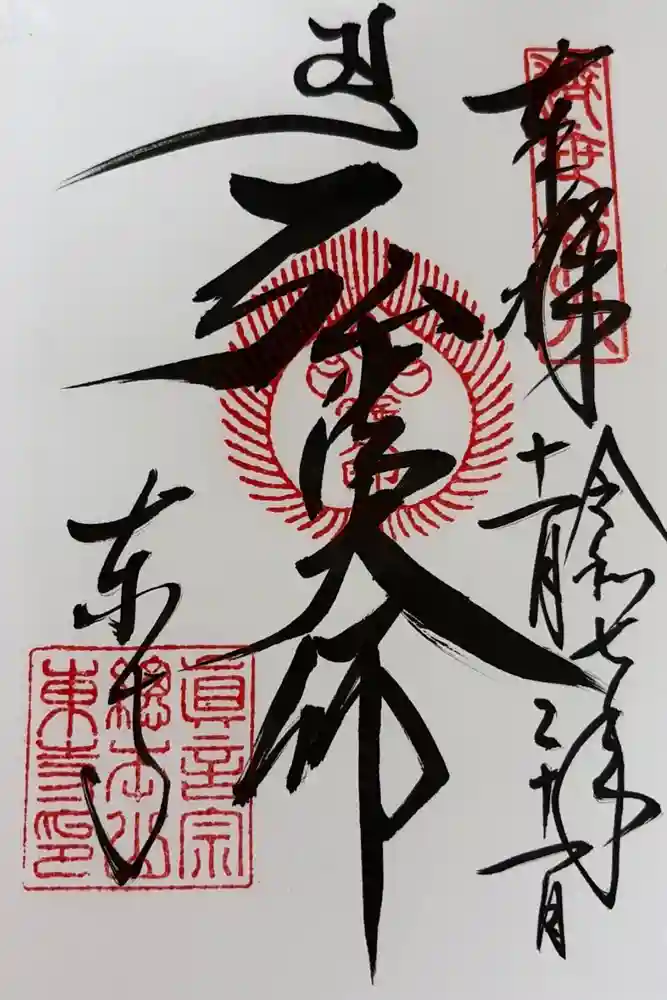 奉拝
令和七年
十一月二十一日
弘法大師
東寺
真言宗
總本山
東寺印